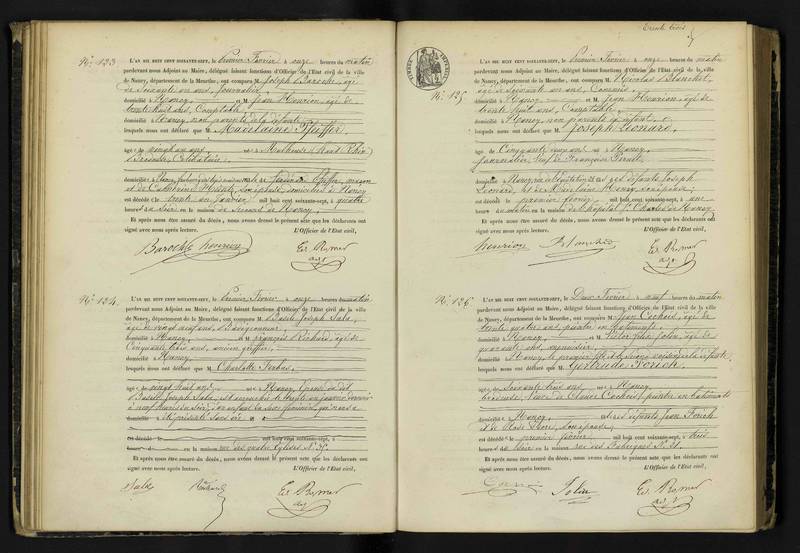 N.° 123
L'AN MIL HUIT CENT SOIXANTE-SEPT, le premier Février à onze heures du matin
pardevant nous Adjoint au Maire, délégué faisant fonctions d'Officier de l'Etat civil de la ville
de Nancy, département de la Meurthe, ont comparu M. Joseph Baroche, âgé
de Soixante un ans, journalier,
domicilié à Nancy, et Jean Henrion, âgé de
trente huit ans, Comptable,
domicilié à Nancy, non parents de la défunte,
lesquels nous ont déclaré que M Madelaine Pfeiffer
âgée de vingt un ans, née à Mulhouse (Haut Rhin)
Célibataire,
domiciliée à Nancy, fille de Ferdinand Pfeiffer, maçon
et de Catherine son épouse, domiciliés à Nancy
est décédée le trente un janvier mil huit cent soixante-sept, à quatre
heures du soir en la maison de Secours de Nancy,
Et après nous être assuré du décès, nous avons dressé le présent acte que les déclarants ont
signé avec nous après lecture. L'Officier de l'Etat civil,
Baroche henrion Ed. Romer
adj.
N.° 124.
L'AN MIL HUIT CENT SOIXANTE-SEPT, le premier Février à onze heures du matin
pardevant nous Adjoint au Maire, délégué faisant fonctions d'Officier de l'Etat civil de la ville
de Nancy, département de la Meurthe, ont comparu M. Basile Joseph Sala,
âgé de vingt neuf ans,
domicilié à Nancy, et François Richard, âgé de
Cinquante trois ans, ancien greffier,
domicilié à Nancy
lesquels nous ont déclaré que M Charlotte
âgée de vingt huit ans, née à Nancy, Épouse du dit
Basile Joseph Sala, est accouchée le trente un janvier dernier
à neuf heures du soir d'un enfant du sexe féminin, qui nous a
été présenté sans vie
est décédé le mil huit cent soixante-sept, à
heures du en la maison rue des quatre Églises N.°
Et après nous être assuré du décès, nous avons dressé le présent acte que les déclarants ont
signé avec nous après lecture. L'Officier de l'Etat civil,
Sala Richard Ed. Romer
adj.
Trente trois
N.° 125
L'AN MIL HUIT CENT SOIXANTE-SEPT, le premier Février à onze heures du matin
pardevant nous Adjoint au Maire, délégué faisant fonctions d'Officier de l'Etat civil de la ville
de Nancy, département de la Meurthe, ont comparu M. Nicolas Blanchet,
âgé de Soixante un ans, Commis,
domicilié à Nancy et Jean Henrion, âgé de
trente huit ans, Comptable,
domicilié à Nancy, non parents du défunt,
lesquels nous ont déclaré que M Joseph Léonard,
âgé de Cinquante ans, né à Nancy,
journalier, Veuf de Françoise
domicilié à Nancy, fils des défunts Joseph
Léonard, et de Madelaine son épouse,
est décédé le premier février mil huit cent soixante-sept, à une
heure du matin en la maison de l'hôpital S.t Charles de Nancy,
Et après nous être assuré du décès, nous avons dressé le présent acte que les déclarants ont
signé avec nous après lecture. L'Officier de l'Etat civil,
henrion Blanchet Ed. Romer
adj.
N.° 126.
L'AN MIL HUIT CENT SOIXANTE-SEPT, le Deux Février à neuf heures du matin
pardevant nous Adjoint au Maire, délégué faisant fonctions d'Officier de l'Etat civil de la ville
de Nancy, département de la Meurthe, ont comparu M. Jean Cochois, âgé de
trente quatre ans, peintre en bâtiments,
domicilié à Nancy, et Victor Jolin, âgé de
quarante ans, menuisier,
domicilié à Nancy, le premier fils et le second voisin de la défunte,
lesquels nous ont déclaré que M Gertrude
âgée de Soixante trois ans, née à Nancy,
brodeuse, Veuve de Claude Cochois, peintre en bâtiments
domiciliée à Nancy, fille des défunts Jean
et de son épouse,
est décédée le premier février mil huit cent soixante-sept, à trois
heures du soir en la maison rue des Fabriques N.°
Et après nous être assuré du décès, nous avons dressé le présent acte que les déclarants ont
signé avec nous après lecture. L'Officier de l'Etat civil,
Jolin Ed. Romer
adj.